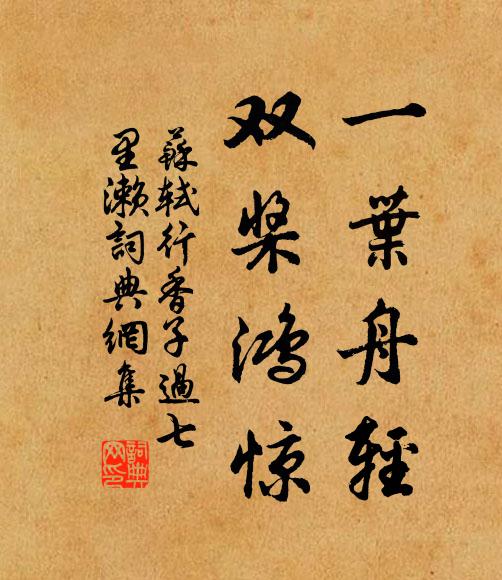 一葉舟輕
双桨鸿惊
蘇軾行香子過七
里濑詞典網集
詞典
网印